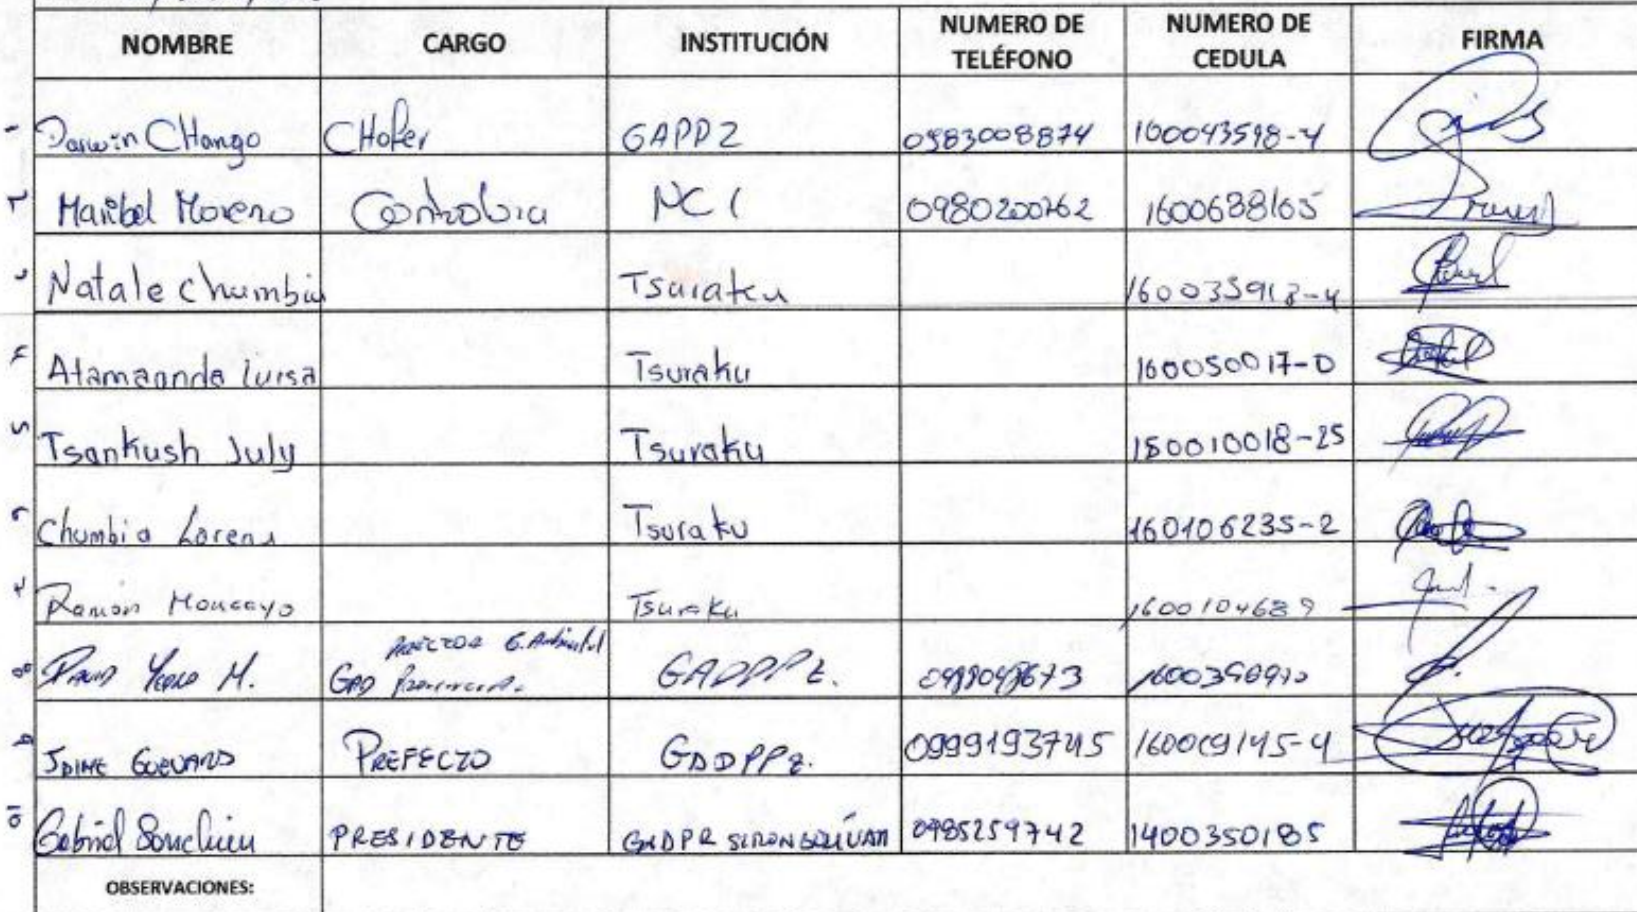 NOMBRE CARGO INSTITUCIÓN NUMERO DE TELÉFONO NUMERO DE CEDULA FIRMA
1 Darwin CHango CHofer GAPPZ 0983008874 160043598-4
2 Maribel Moreno Contralora NCI 0980200262 1600638165
3 Natale Chumbia Tsuraku 160035913-4
4 Atamaanda luisa Tsuraku 160050017-0
5 Tsankush July Tsuraku 160010018-25
6 Chumbia Lorena Tsuraku 160106235-2
7 Ramón Moncayo Tsuraku 1600104689
8 David M. GAD GADPPZ.
9 JAIME GUEVARA PREFECTO GADPPZ. 0999193745 16009145-4
10 Gabriel PRESIDENTE GADPR SIMON BOLÍVAR 0985259742 1400350185
OBSERVACIONES: